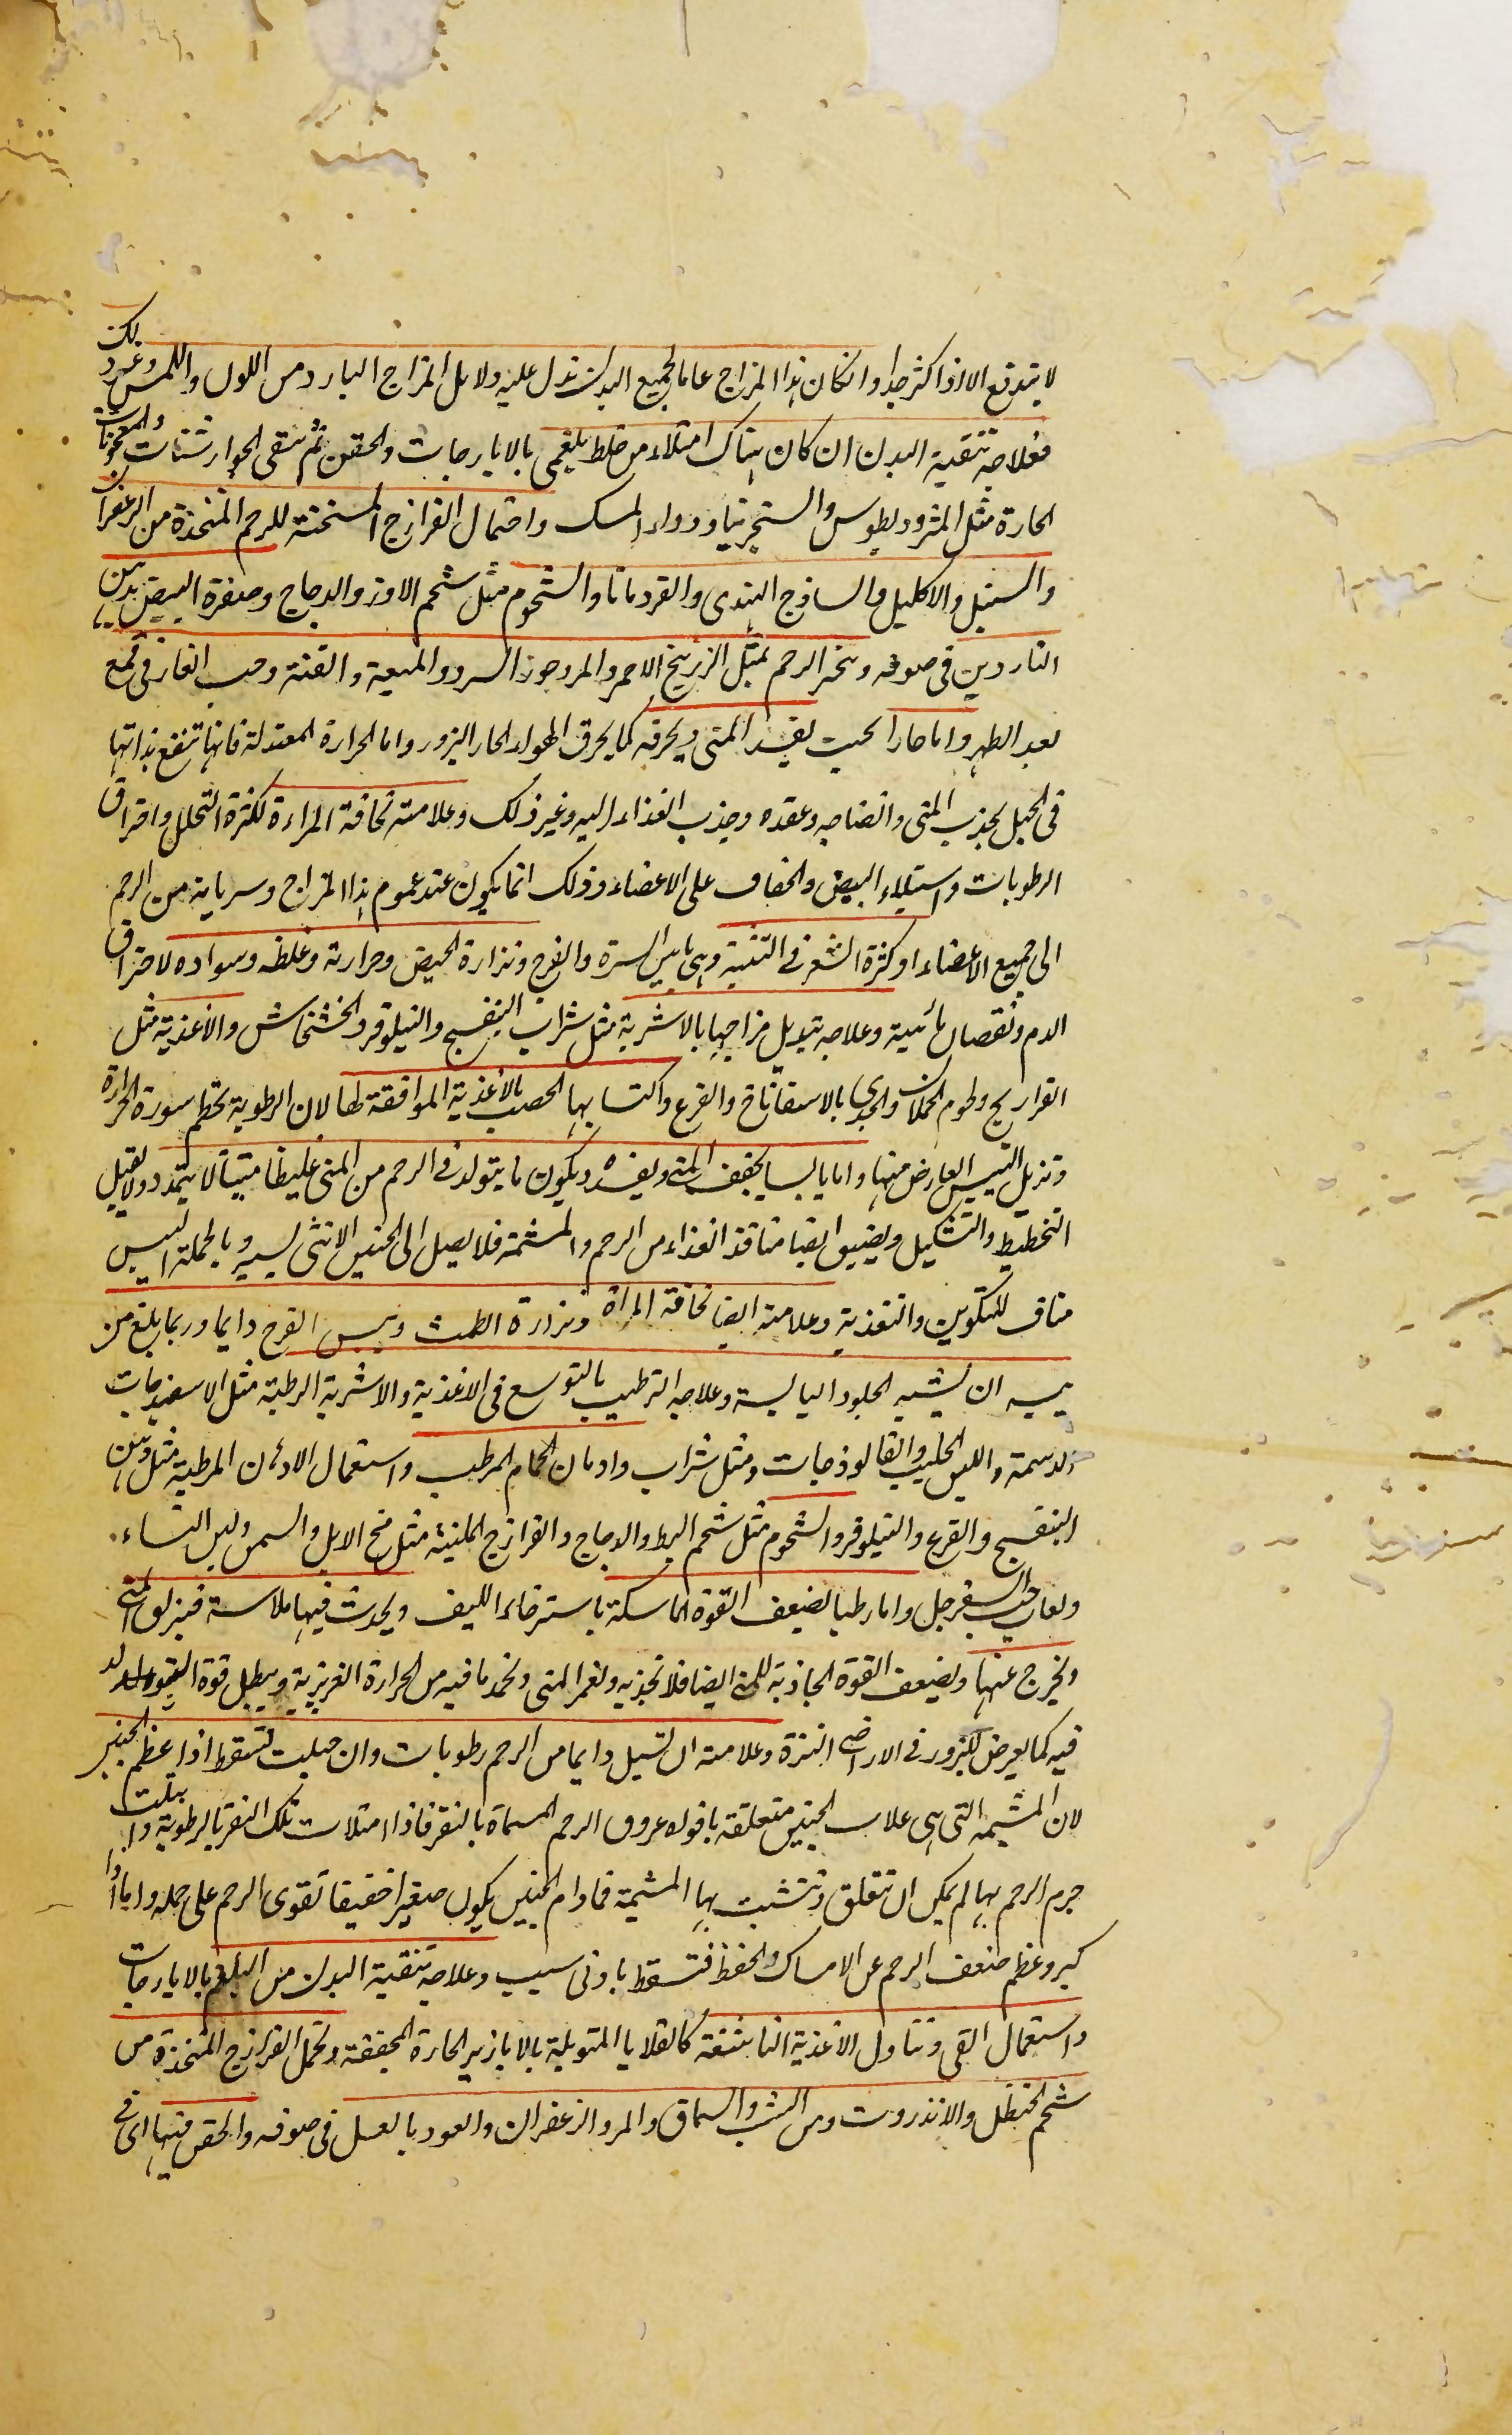 لا يندفع الا اذا كثر جدا وانكان هذا المزاج عاما لجميع البدن تدل عليه دلايل المزاج البارد من اللون واللمس وغير ذلك
فعلاجه تنقية البدن ان كان هناك امتلاء من خلط بلغمي بالايارجات والحقن ثم سقى الجوارشنات والمعجونات
الحارة مثل المثروديطوس والسنجرنيا ودواء المسك واحتمال الفرازج المسخنة للرحم المتخذة من الزعفران
والسنبل والاكليل والساذج الهندى والقردمانا والشحوم مثل شحم الاوز والدجاج وصفرة البيض بدهن
الناردين في صوفه وبخر الرحم بمثل الزرنيخ الاحمر والمر وجوز السرو والميعة والقنة وحب الغار في قمع
بعد الطهر واما حارا بحيث يفسد المنى ويحرقه كما يحرق الهواء الحار البزور واما الحرارة المعتدلة فانها تنفع بذاتها
في الحبل بجذب المنى وانضاجه وعقده وجذب الغذاء اليه وغير ذلك وعلامته نحافة المراءة لكثرة التحلل واحتراق
الرطوبات واستيلاء اليبس والجفاف على الاعضاء وذلك انما يكون عند عموم هذا المزاج وسريانه من الرحم
الى جميع الاعضاء او كثرة الشعر في الثنية وهى ما بين السرة والفرج ونزارة الحيض وحرارته وغلظه وسواده لاحتراق
الدم ونقصان مائيية وعلاجه تبديل مزاجها بالاشربة مثل شراب البنفسج والنيلوفر والخشخاش والاغذية مثل
الفراريج ولحوم الحملان والجدى بالاسفاناخ والقرع واكتسابها الخصب بالاغذية الموافقة لها لان الرطوبة تحطم سورة الحرارة
وتزيل اليبس العارض منها واما يابسا يجفف المنى ويفسده ويكون ما يتولد في الرحم من المنى غليظا متينا لا يتمدد ولا يقبل
التخطيط والتشكيل ويضيق ايضا منافذ الغذاء من الرحم والمشيمة فلا يصل الى الجنين الا شى يسير وبالجملة اليبس
مناف للتكوين والتغذية وعلامته ايضا نحافة المراة ونزارة الطمث ويبس الفرج دايما وربما بلغ من
يبسه ان يشبه الجلود اليابسة وعلاجه الترطيب بالتوسع في الاغذية والاشربة الرطبة مثل الاسفيدجات
الدسمة واللبن الحليب والفالوذجات ومثل شراب وادمان الحمام المرطب واستعمال الادهان المرطبة مثل دهن
البنفسج والقرع والنيلوفر والشحوم مثل شحم البط والدجاج والفرازج الملينة مثل مخ الابل والسمن ولبن النساء
ولعاب حب السفرجل واما رطبا يضعف القوة الماسكة باسترخاء الليف ويحدث فيها ملاسة فيزلق المنى
ويخرج عنها ويضعف القوة الجاذبة للمنى ايضا فلا تجذبه ويغمر المنى ويخمد ما فيه من الحرارة الغريزية ويبطل قوة
فيه كما يعرض للبزور في الاراضى النزة وعلامته ان تسيل دايما من الرحم رطوبات وان حبلت تسقط اذا عظم الجنين
لان المشيمة التى هى غلاف الجنين متعلقة بافواه عروق الرحم المسماة بالنقر فاذا امتلات تلك النقر بالرطوبة وابتلت
جرم الرحم بها لم يمكن ان تتعلق وتتشبث بها المشيمة فما دام الجنين يكون صغيرا خفيفا تقوى الرحم على حمله واما اذا
كبر وعظم ضعف الرحم عن الامساك والحفظ فتسقط بادنى سبب وعلاجه تنقية البدن من البلغم بالايارجات
واستعمال القى وتناول الاغذية الناشفة كالقلايا المتوبلة بالابازير الحارة المجففة وتحمل الفرازج المتخذة من
شحم الحنظل والانذروت ومن الشب والسماق والمر والزعفران والعود بالعسل في صوفه والحقن فيها اى في